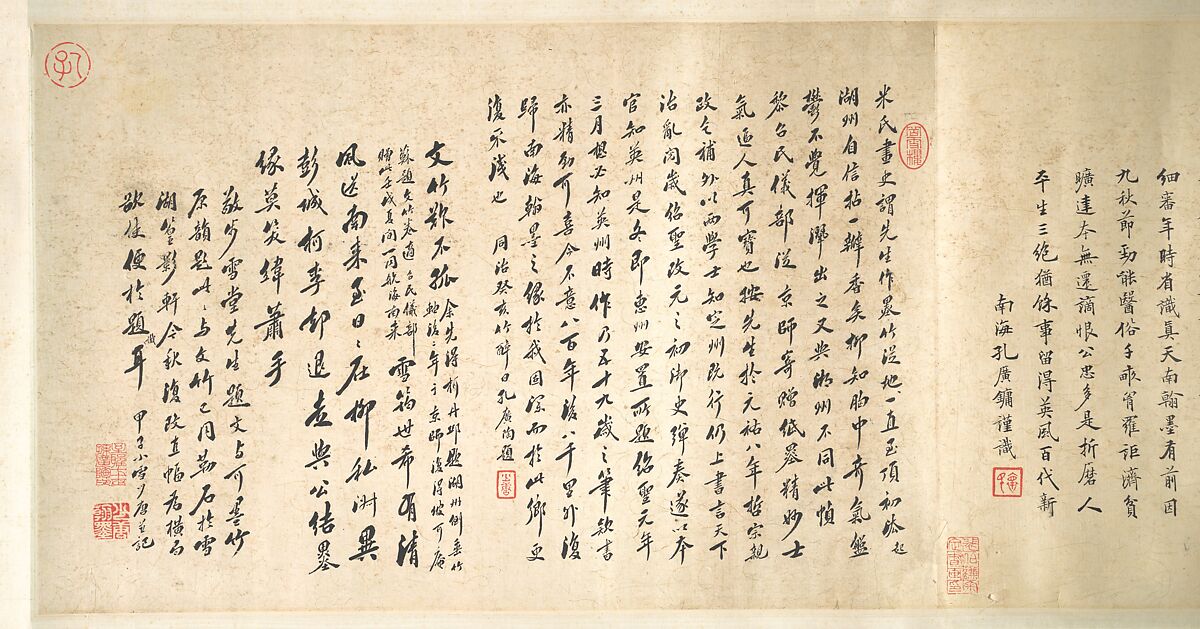 細審年時省識真天南翰墨有前因
九秋節勁能醫俗千畝胷羅詎濟貧
曠達本無遷謫恨公忠多是折磨人
平生三絶猶餘事留得英風百代新
南海孔廣鏞謹識
米氏畫史謂先生作墨竹從地一直至頂初無起
湖州自信拈一瓣香矣抑知胸中奇氣盤
鬱不覺揮灑出之又與湖州不同此幀
黎召民儀部從京師寄贈紙墨精妙士
氣逼人真可寶也按先生於元祐八年哲宗親
政乞補外以兩學士知定州既行仍上書言天下
治亂閱歲紹聖改元之初御史彈奏遂以本
官知英州是冬即惠州安置所題紹聖元年
三月想必知英州時作乃五十九歲之筆款書
亦精勁可喜今不意八百年後八千里外復
歸南海翰墨之緣於我固深而於此鄉更
復不淺也 同治癸亥竹醉日孔廣陶題
文竹欵不孤 余先得柯丹邱題湖州倒垂竹
軸後年于京師復得坡可庵
蘇題文竹卷適召民儀部
贈此壬戌夏間一同航海南來
雪筠世希有清
風送南來至日日在柳私淑異
彭城柯李却退走與公結墨
緣莫笑緯蕭手
敬步雪堂先生題文與可墨竹
原韻題此此與文竹已同勒石於雪
湖簃影軒今秋復改直幀為橫局
欲使便於題識耳 甲子小雪少唐並記